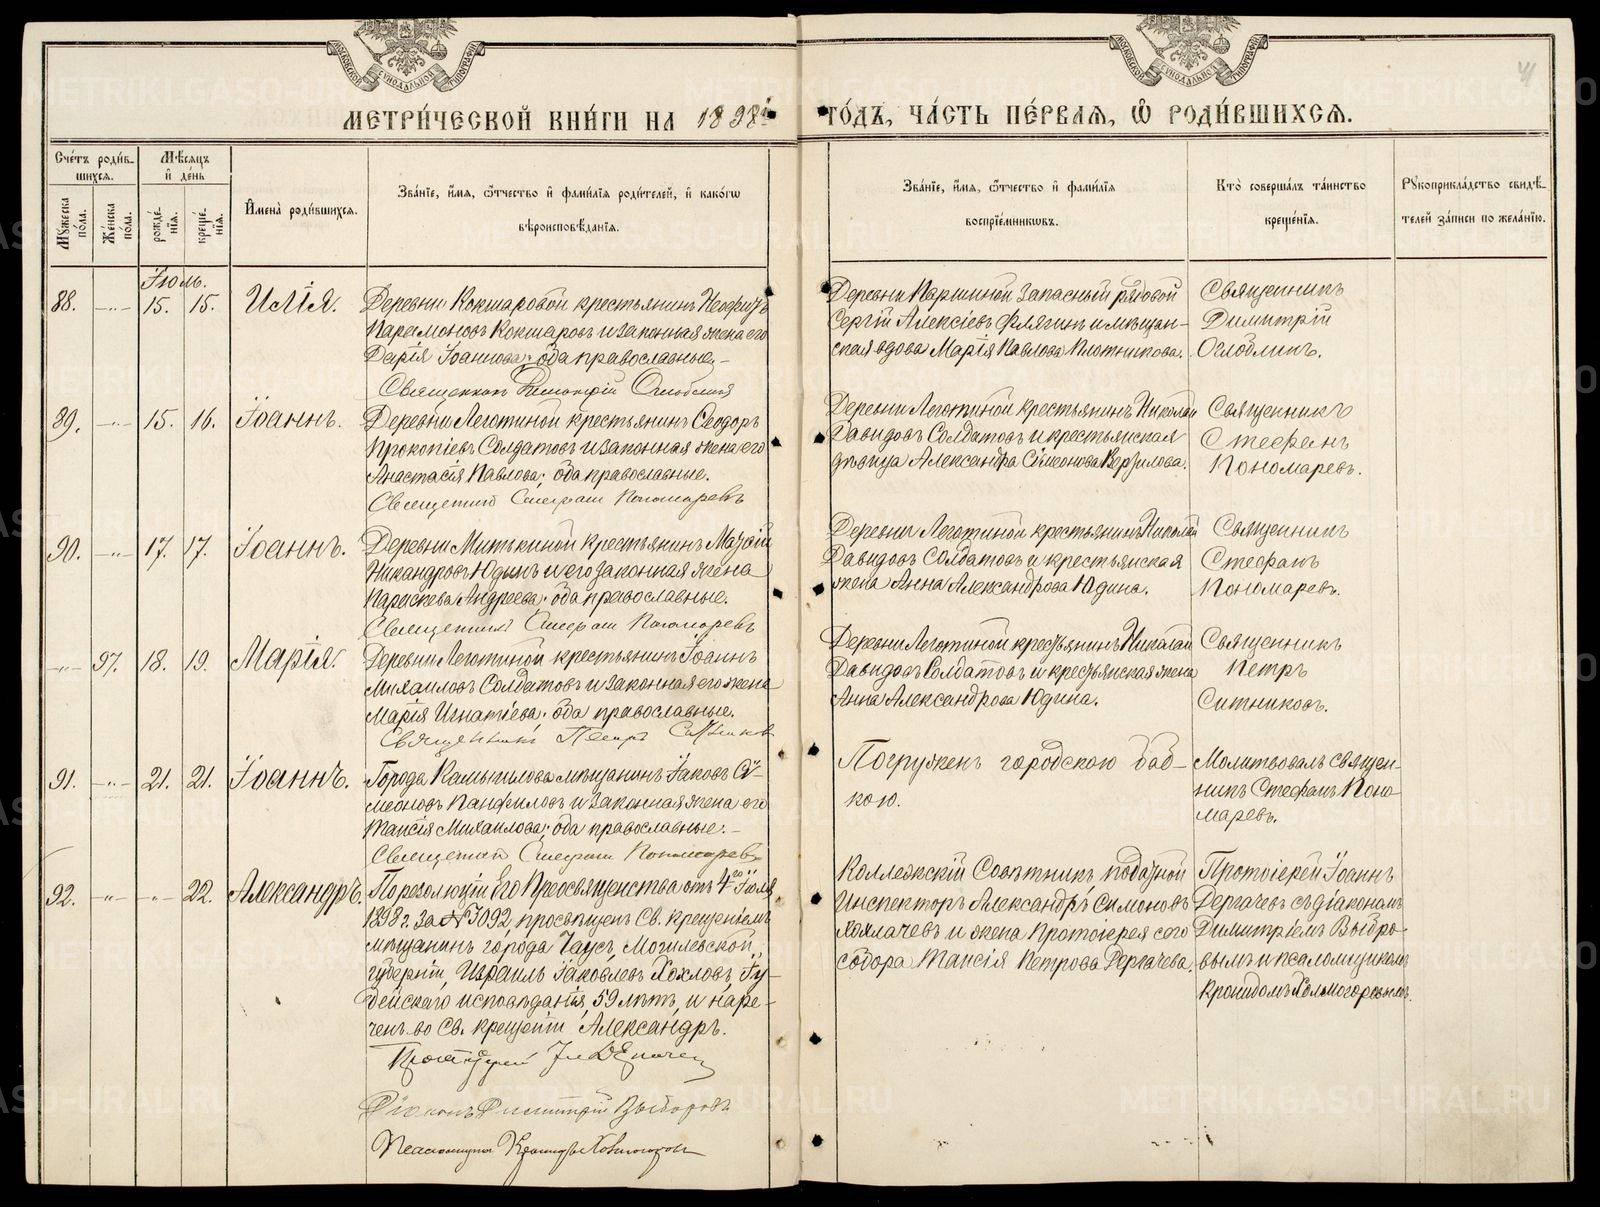 МЕТРИ́ЧЕСКОЙ КНИ́ГИ НА 1898й
ГО́ДЪ, ЧА́СТЬ ПЕ́РВАѦ, Ѡ҆ РОДИ́ВШИХСѦ.
41
Сче́тъ роди́в-
шихсѧ.
Мѣ́сѧцъ
и҆ де́нь
И҆мена̀ роди́вшихсѧ.
Зва́нїе, и҆́мѧ, ѻ҆́тчество и҆ фами́лїѧ роди́телей, и҆ како́гѡ
вѣроисповѣ́данїѧ.
Мꙋ́жеска по́ла.
Же́нска по́ла.
рожде́нїѧ.
креще́нїѧ.
Зва́нїе, и҆́мѧ, ѻ҆́тчество и҆ фами́лїѧ
воспрїе́мникѡвъ.
Кто̀ соверша́лъ та́инство
креще́нїѧ.
Рꙋкоприкла́дство свидѣ́-
телей за́писи по жела́нїю.
Іюль.
88. —„— 15. 15. Илія.
Деревни Кокшаровой крестьянинъ Неофитъ
Парамоновъ Кокшаровъ и законная жена его
Дарія Іоаннова; оба православные.—
Священникъ Димитрій Оглоблинъ
Деревни Паршиной запасный рядовой
Сергій Алексіевъ Флягинъ и мѣщан-
ская вдова Марія Павлова Плотникова.
Священникъ
Димитрій
Оглоблинъ.
89. —„— 15. 16. Іоаннъ.
Деревни Леготиной крестьянинъ Ѳеодоръ
Прокопіевъ Солдатовъ и законная жена его
Анастасія Павлова; оба православные.
Священникъ Стефанъ Пономаревъ
Деревни Леготиной крестьянинъ Николай
Давидовъ Солдатовъ и крестьянская
дѣвица Александра Сѵмеонова Верзилова.
Священникъ
Стефанъ
Пономаревъ.
90. —„— 17. 17. Іоаннъ.
Деревни Митькиной крестьянинъ
Никандровъ Юдинъ и его законная жена
Параскева Андреева; оба православные.
Священникъ Стефанъ Пономаревъ
Деревни Леготиной крестьянинъ Николай
Давидовъ Солдатовъ и крестьянская
жена Анна Александрова Юдина.
Священникъ
Стефанъ
Пономаревъ.
—„— 97. 18. 19. Марія.
Деревни Леготиной крестьянинъ Іоаннъ
Михаиловъ Солдатовъ и законная его жена
Марія Игнатіева; оба православные.
Священникъ Петръ Ситниковъ
Деревни Леготиной крестьянинъ Николай
Давидовъ Солдатовъ и крестьянская жена
Анна Александрова Юдина.
Священникъ
Петръ
Ситниковъ.
91. —„— 21. 21. Іоаннъ.
Города Камышлова мѣщанинъ Іаковъ Сѵ-
меоновъ Панфиловъ и законная жена его
Таисія Михаилова; оба православные.—
Священникъ Стефанъ Пономаревъ
Погруженъ городскою баб-
кою.
Молитвовалъ священ-
никъ Стефанъ Поно-
маревъ.
92. —„— —„— 22. Александръ.
По резолюціи Его Преосвященства отъ 4го Іюля
1898 г. за № 3092, просвѣщенъ Св. крещеніемъ
мѣщанинъ города Чаусъ, Могилевской
губерніи, Израиль Іаковлевъ Хохловъ, Іу-
дейскаго исповѣданія, 59 лѣтъ, и наре-
ченъ во Св. крещеніи Александръ.
Протоіерей
Діаконъ Димитрій Выборовъ
Псаломщикъ Кронидъ Холмогоровъ
Коллежскій Совѣтникъ, податной
Инспекторъ Александръ Симоновъ
Хохлачевъ и жена Протоіерея сего
собора Таисія Петрова Дергачева.
Протоіерей Іоаннъ
Дергачевъ съ діакономъ
Димитріемъ Выборо-
вымъ и псаломщикомъ
Кронидомъ Холмогоровымъ.